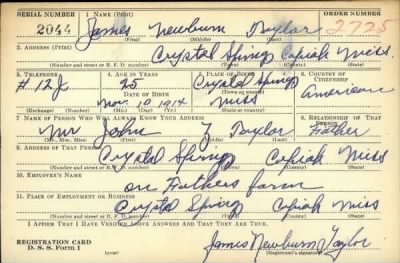 SERIAL NUMBER 1. NAME (Print) ORDER NUMBER
2044 James Newburn Taylor 2725
(First) (Middle) (Last)
2. ADDRESS (Print)
Crystal Springs Copiah Miss.
(Number and street or R. F. D. number) (Town) (County) (State)
3. TELEPHONE 4. AGE IN YEARS 5. PLACE OF BIRTH 6. COUNTRY OF CITIZENSHIP
#12J 25 Crystal Springs
DATE OF BIRTH (Town or county)
Nov 10 1914 Miss American
(Exchange) (Number) (Mo.) (Day) (Yr.) (State or country)
7. NAME OF PERSON WHO WILL ALWAYS KNOW YOUR ADDRESS 8. RELATIONSHIP OF THAT PERSON
Mr John Z Taylor Father
(Mr., Mrs., Miss) (First) (Middle) (Last)
9. ADDRESS OF THAT PERSON
Crystal Springs Copiah Miss
(Number and street or R. F. D. number) (Town) (County) (State)
10. EMPLOYER'S NAME
on Fathers farm
11. PLACE OF EMPLOYMENT OR BUSINESS
Crystal Springs Copiah Miss
(Number and street or R. F. D. number) (Town) (County) (State)
I AFFIRM THAT I HAVE VERIFIED ABOVE ANSWERS AND THAT THEY ARE TRUE.
REGISTRATION CARD
D. S. S. Form 1 James Newburn Taylor
(over) (Registrant's signature)